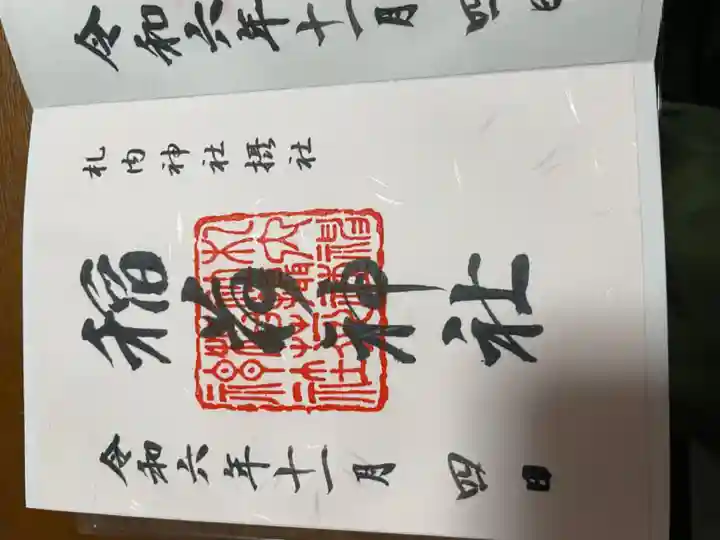 札内神社摂社
稲荷神社
令和六年十一月四日
令和六年十一月四日